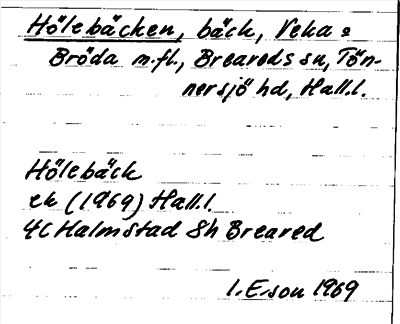 Hölebäcken, bäck, Veka o
Bröda m.fl., Breareds sn, Tön-
nersjö hd, Hall.l.
Hölebäck
ek (1969) Hall.l.
4C Halmstad 8h Breared
I. E-son 1969